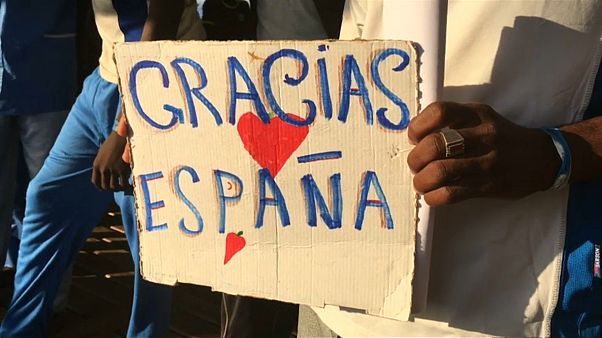 GRACIAS
ESPAÑA